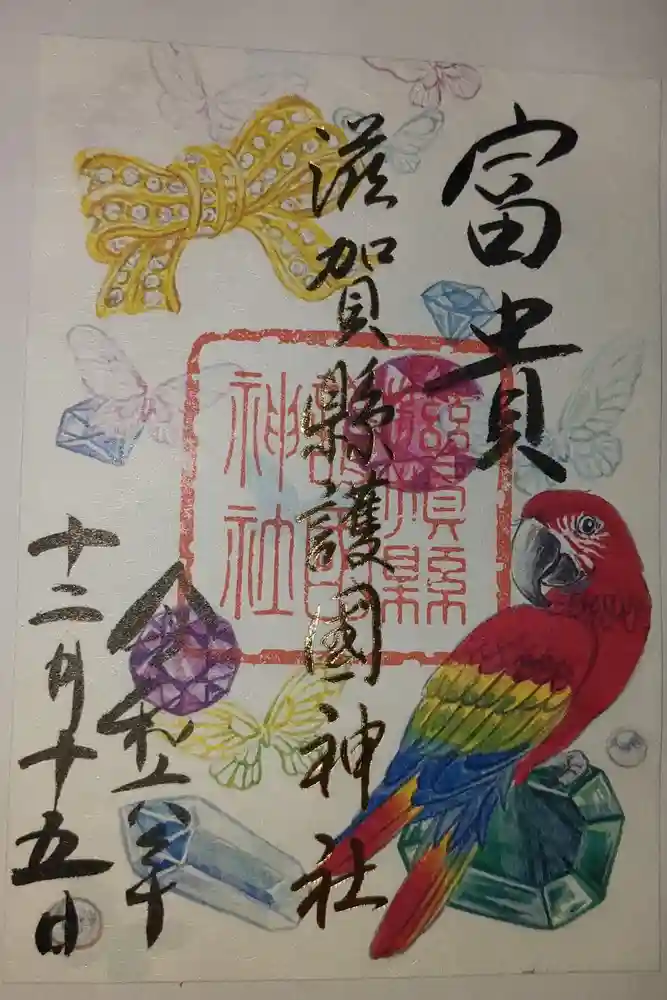 富貴
滋賀縣護國神社
滋賀縣
護國
神社
令和六年
十二月十五日